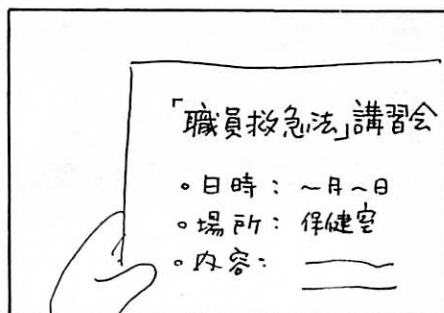 「職員救急法」講習会
・日時：〜月〜日
・場所：保健室
・内容：